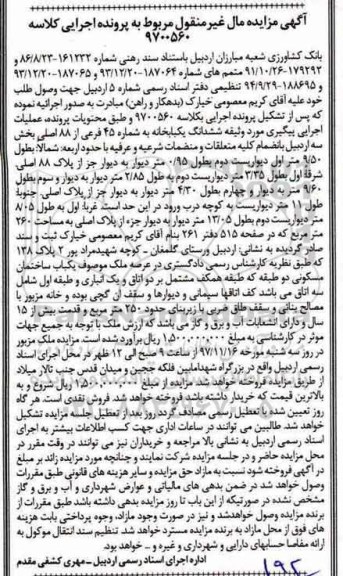 آگهی مزایده مال غیر منقول مربوط به پرونده اجرایی کلاسه
۹۷۰۰۵۶۰
بانک کشاورزی شعبه مبارزان اردبیل باستناد سند رهنی شماره ۱۶۱۲۳۲-۸۶/۸/۲۳ و
۱۷۹۲۹۲-۹۱/۱۰/۲۶ متمم های شماره ۱۸۷۰۶۴-۹۳/۱۲/۲۰ و ۱۸۷۰۶۵-۹۳/۱۲/۲۰
و ۱۸۸۶۹۵-۹۴/۹/۲۹ تنظیمی دفتر اسناد رسمی شماره ۵ اردبیل جهت وصول طلب
خود علیه آقای کریم معصومی خیارک (بدهکار و راهن) مبادرت به صدور اجرائیه نموده
که پس از تشکیل پرونده اجرایی بکلاسه ۹۷۰۰۵۶۰ و طبق محتویات پرونده، عملیات
اجرایی پیگیری مورد وثیقه ششدانگ یکبابخانه به شماره ۴۵ فرعی از ۸۸ اصلی بخش
سه اردبیل بانضمام کلیه متعلقات و منضمات شرعیه و عرفیه با حدود اربعه: شمالا: بطول
۹/۵۰ متر اول دیواریست دوم بطول ۰/۹۵ متر دیوار به دیوار جز از پلاک ۸۸ اصلی
شرقا: اول بطول ۳/۳۵ متر دیواریست دوم به طول ۲/۸۵ متر دیوار به دیوار و سوم بطول
۹/۶۰ متر دیوار به دیوار و چهارم بطول ۴/۳۰ متر دیوار به دیوار جز از پلاک اصلی. جنوبا:
طول ۱۱ متر دیواریست به کوچه درب ورود در این حد است. غربا: اول به طول ۸/۰۵
متر دیواریست دوم بطول ۱۳/۰۵ متر دیوار به دیوار جزء از پلاک اصلی به مساحت ۲۶۰
متر مربع که در صفحه ۵۱۵ دفتر ۲۶۱ بنام آقای کریم معصومی خیارک ثبت و سند
صادر گردیده به نشانی: اردبیل ورستای گلمغان- کوچه شهیدمراد پور ۲ پلاک ۱۳۸
که طبق نظریه کارشناس رسمی دادگستری در عرصه ملک موصوف یکباب ساختمان
مسکونی دو طبقه که طبقه همکف مشتمل بر دو اتاق و یک انباری و طبقه اول شامل
سه اتاق می باشد کف اتاقها سیمانی و دیوارها و سقف آن گچی بوده و خانه مزبور با
مصالح بنائی و سقف طاق ضربی با زیربنای حدود ۲۵۰ متر مربع و قدمت بیش از ۱۵
سال و دارای انشعابات آب و برق و گاز می باشد که ارزش ملک با توجه به جمیع جهات
موثر در کارشناسی به مبلغ ۱,۵۰۰,۰۰۰,۰۰۰ ریال برآورد شده است. مزایده ملک مزبور
در روز سه شنبه مورخه ۹۷/۱۱/۱۶ از ساعت ۹ صبح الی ۱۲ ظهر در محل اجرای اسناد
رسمی اردبیل واقع در بزرگراه شهدامابین فلکه ججین و میدان قدس جنب تالار میلاد
از طریق مزایده فروخته خواهد شد. مزایده از مبلغ ۱,۵۰۰,۰۰۰,۰۰۰ ریال شروع و به
بالاترین قیمت که خریدار داشته باشد فروخته خواهد شد. فروش نقدی است. هر گاه
روز تعیین شده با تعطیل رسمی مصادف گردد روز بعد از تعطیل جلسه مزایده تشکیل
خواهد شد. طالبین می توانند در ساعات اداری جهت کسب اطلاعات بیشتر به اجرای
اسناد رسمی اردبیل به نشانی بالا مراجعه و خریداران نیز می توانند در وقت مقرر در
محل مزایده حاضر و در جلسه مزایده شرکت نمایند و چنانچه مورد مزایده زائد بر مبلغ
در آگهی فروخته شود نسبت به مازاد حق مزایده و سایر هزینه های قانونی طبق مقررات
وصول خواهد شد در ضمن بدهی های مالیاتی و عوارض شهرداری و آب و برق و گاز
مشخص نشده در صورتیکه از این باب تا روز مزایده بدهی داشته باشد طبق مقررات از
برنده مزایده وصول خواهدشد و نیز در صورت وجود مازاد، وجوه پرداختی بابت هزینه
های فوق از محل مازاد به برنده مزایده مسترد خواهد شد. تنظیم سند انتقال موکول به
ارائه مفاصا حسابهای دارایی و شهرداری و غیره و ... خواهد بود.
اداره اجرای اسناد رسمی اردبیل - مهری کشفی مقدم
۱۹۲